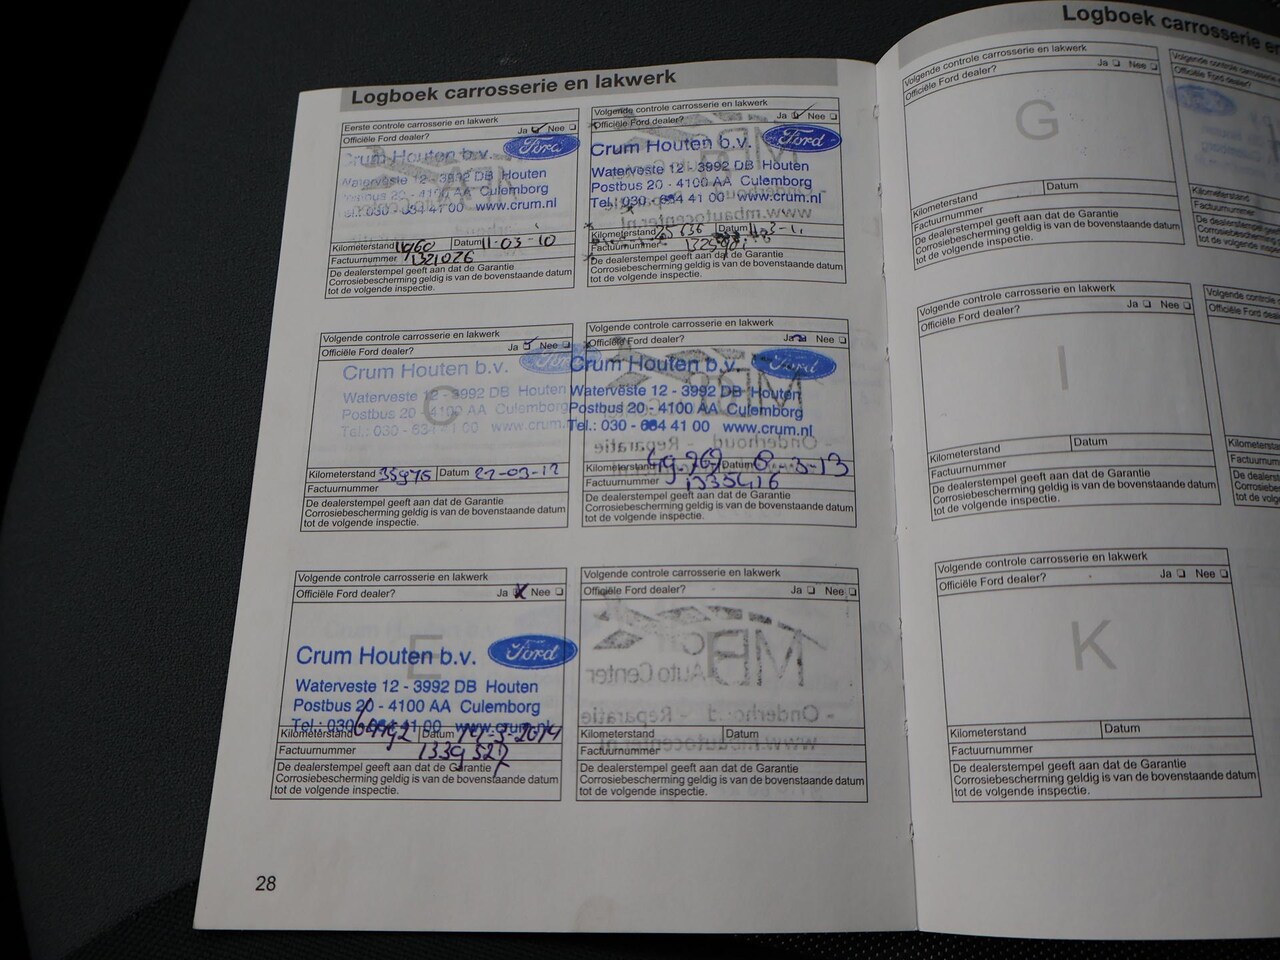 Logboek carrosserie en lakwerk
Eerste controle carrosserie en lakwerk
Officiële Ford dealer? Ja Nee
Ford
Crum Houten b.v.
Waterveste 12 - 3992 DB Houten
Postbus 20 - 4100 AA Culemborg
Tel.: 030 - 634 41 00 www.crum.nl
Kilometerstand Datum 11-03-10
Factuurnummer 1321076
De dealerstempel geeft aan dat de Garantie
Corrosiebescherming geldig is van de bovenstaande datum
tot de volgende inspectie.
Volgende controle carrosserie en lakwerk
Officiële Ford dealer? Ja Nee
Ford
Crum Houten b.v.
Waterveste 12 - 3992 DB Houten
Postbus 20 - 4100 AA Culemborg
Tel.: 030 - 634 41 00 www.crum.nl
Kilometerstand 25636 Datum
Factuurnummer
De dealerstempel geeft aan dat de Garantie
Corrosiebescherming geldig is van de bovenstaande datum
tot de volgende inspectie.
Volgende controle carrosserie en lakwerk
Officiële Ford dealer? Ja Nee
Ford
C
Crum Houten b.v.
Waterveste 12 - 3992 DB Houten
Postbus 20 - 4100 AA Culemborg
Tel.: 030 - 634 41 00 www.crum.
Kilometerstand 35975 Datum 27-03-12
Factuurnummer
De dealerstempel geeft aan dat de Garantie
Corrosiebescherming geldig is van de bovenstaande datum
tot de volgende inspectie.
Volgende controle carrosserie en lakwerk
Officiële Ford dealer? Ja Nee
Ford
Crum Houten b.v.
Waterveste 12 - 3992 DB Houten
Postbus 20 - 4100 AA Culemborg
Tel.: 030 - 634 41 00 www.crum.nl
Kilometerstand 49-767 Datum 8-3-13
Factuurnummer 1335416
De dealerstempel geeft aan dat de Garantie
Corrosiebescherming geldig is van de bovenstaande datum
tot de volgende inspectie.
Volgende controle carrosserie en lakwerk
Officiële Ford dealer? Ja Nee
E
Ford
Crum Houten b.v.
Waterveste 12 - 3992 DB Houten
Postbus 20 - 4100 AA Culemborg
Tel.: 030 - 634 41 00 www.crum.nl
Kilometerstand 64192 Datum 14-3-2014
Factuurnummer 1339527
De dealerstempel geeft aan dat de Garantie
Corrosiebescherming geldig is van de bovenstaande datum
tot de volgende inspectie.
Volgende controle carrosserie en lakwerk
Officiële Ford dealer? Ja Nee
MB
Auto Center
- Onderhoud - Reparatie
www.mbautocenter.nl
Kilometerstand Datum
Factuurnummer
De dealerstempel geeft aan dat de Garantie
Corrosiebescherming geldig is van de bovenstaande datum
tot de volgende inspectie.
28
Logboek carrosserie e
Volgende controle carrosserie en lakwerk
Officiële Ford dealer? Ja Nee
G
Kilometerstand Datum
Factuurnummer
De dealerstempel geeft aan dat de Garantie
Corrosiebescherming geldig is van de bovenstaande datum
tot de volgende inspectie.
Volgende controle carrosserie en lakwerk
Officiële Ford dealer? Ja Nee
I
Kilometerstand Datum
Factuurnummer
De dealerstempel geeft aan dat de Garantie
Corrosiebescherming geldig is van de bovenstaande datum
tot de volgende inspectie.
Volgende controle carrosserie en lakwerk
Officiële Ford dealer? Ja Nee
K
Kilometerstand Datum
Factuurnummer
De dealerstempel geeft aan dat de Garantie
Corrosiebescherming geldig is van de bovenstaande datum
tot de volgende inspectie.